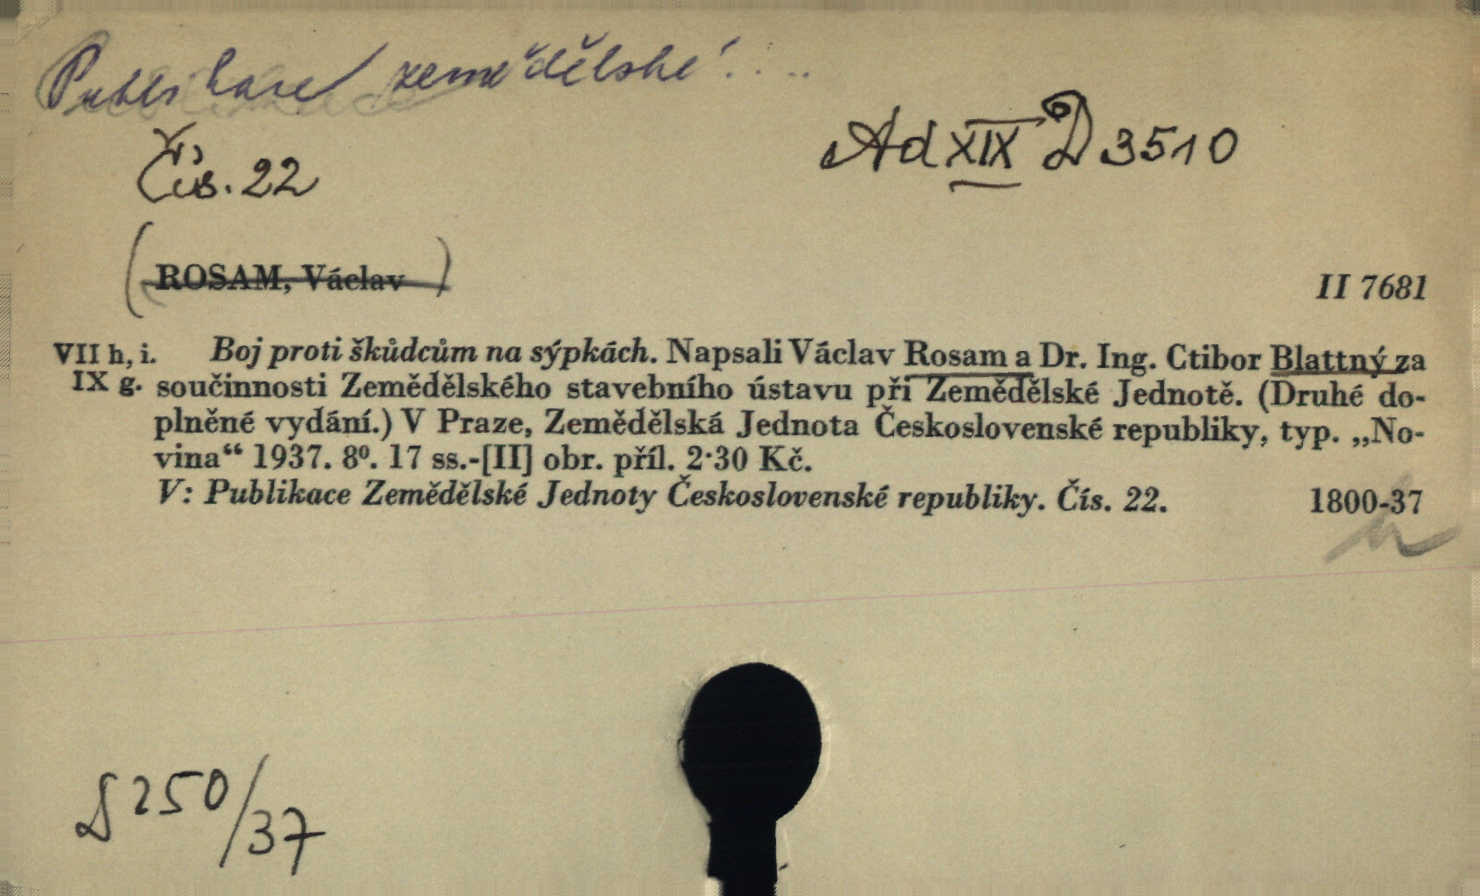 Publikace zemědělské....
Ad XIX D 3510
Čís. 22
(ROSAM, Václav)
II 7681
VII h, i. Boj proti škůdcům na sýpkách. Napsali Václav Rosam a Dr. Ing. Ctibor Blattný za
IX g. součinnosti Zemědělského stavebního ústavu při Zemědělské Jednotě. (Druhé do-
plněné vydání.) V Praze, Zemědělská Jednota Československé republiky, typ. „No-
vina“ 1937. 8⁰. 17 ss.-[II] obr. příl. 2·30 Kč.
V: Publikace Zemědělské Jednoty Československé republiky. Čís. 22. 1800-37
250/37